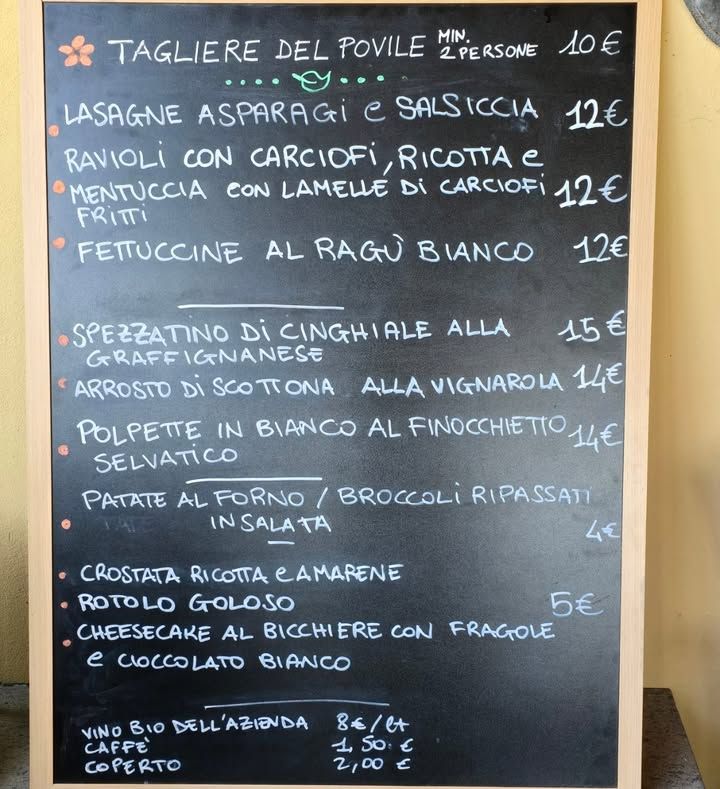 TAGLIERE DEL POVILE MIN. 2 PERSONE 10€
LASAGNE ASPARAGi e SALSICCIA 12€
RAVIOLI CON CARCIOFI, RICOTTA e
MENTUCCIA CON LAMELLE Di CARCIOFI 12€
FRITTI
FETTUCCINE AL RAGÙ BIANCO 12€
SPEZZATINO Di CINGHIALE ALLA 15€
GRAFFIGNANESE
ARROSTO Di SCOTTONA ALLA VIGNAROLA 14€
POLPETTE IN BIANCO AL FINOCCHIETTO 14€
SELVATICO
PATATE AL FORNO / BROCCOLi RIPASSATI
INSALATA 4€
CROSTATA RICOTTA e AMARENE
ROTOLO GOLOSO 5€
CHEESECAKE AL BICCHIERE CON FRAGOLE
e CIOCCOLATO BIANCO
VINO BIO DELL'AZIENDA 8€/lt
CAFFÈ 1,50 €
COPERTO 2,00 €